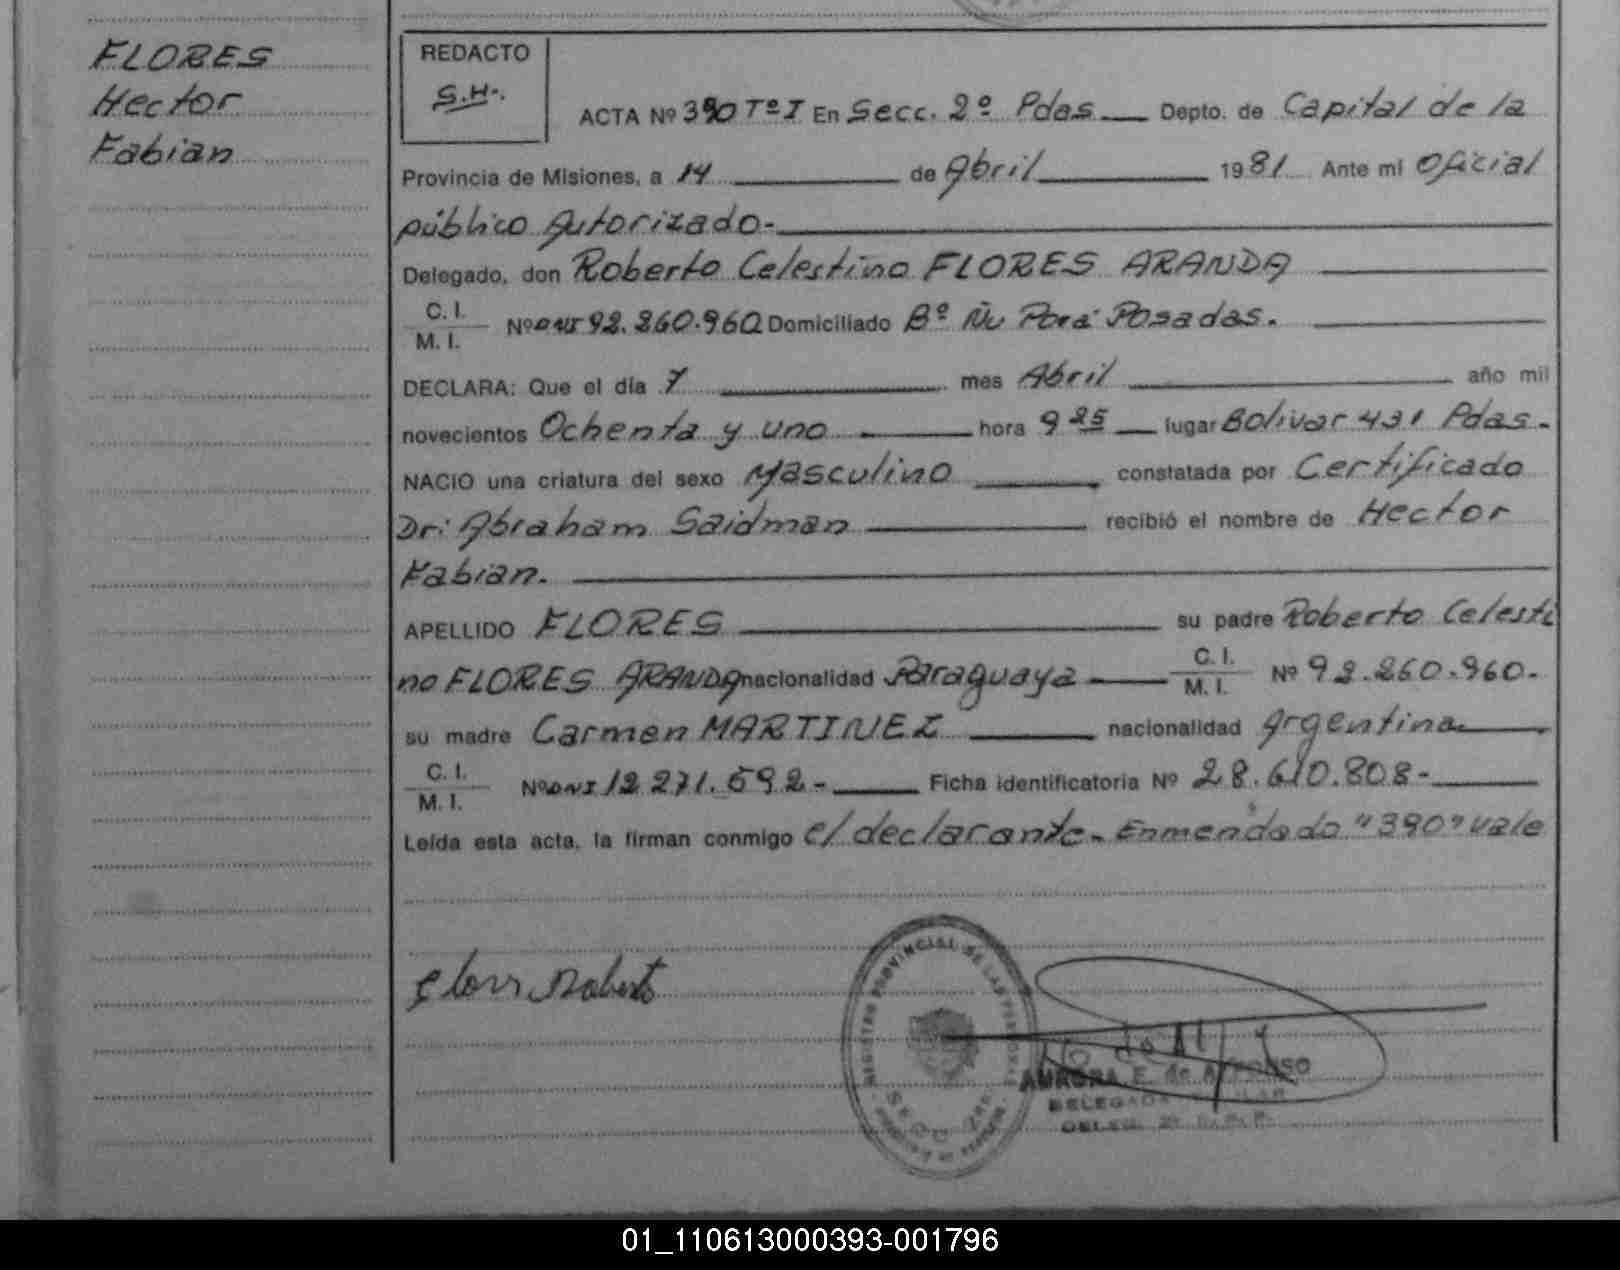 FLORES
Hector
Fabian
REDACTO
S.H-.
ACTA Nº 390 TºI En Secc. 2º Pdas. Depto. de Capital de la
Provincia de Misiones, a 14 de Abril 1981 Ante mi Oficial
público Autorizado-
Delegado, don Roberto Celestino FLORES ARANDA
C. I.
M. I. Nº DNI 92.260.960 Domiciliado Bº Ñu Porá Posadas.
DECLARA: Que el día 7 mes Abril año mil
novecientos Ochenta y uno hora 9 25 lugar Bolivar 431 Pdas.
NACIO una criatura del sexo Masculino constatada por Certificado
Dr: Abraham Saidman recibió el nombre de Hector
Fabian.
APELLIDO FLORES su padre Roberto Celesti
no FLORES ARANDA nacionalidad Paraguaya C. I.
M. I. Nº 92.260.960.
su madre Carmen MARTINEZ nacionalidad Argentina
C. I.
M. I. Nº DNI 12 271.592- Ficha identificatoria Nº 28.610.808-
Leída esta acta, la firman conmigo el declarante. Enmendado "390" vale
Flores Roberto
REGISTRO PROVINCIAL DE LAS PERSONAS
SECC. 2da.
AURORA E. de Alfonso
DELEGADA TITULAR
01_110613000393-001796